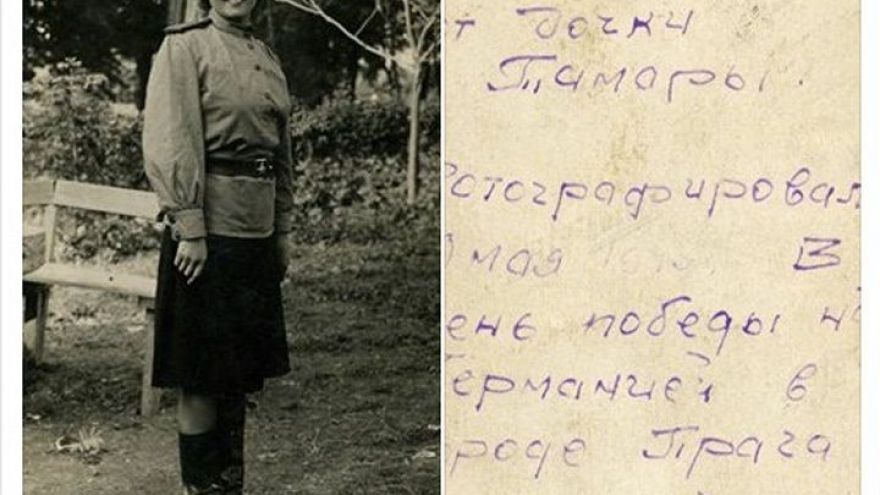 т дочки
Тамары.
отографировал
мая В
ень победы н
Германией в
роде Прага